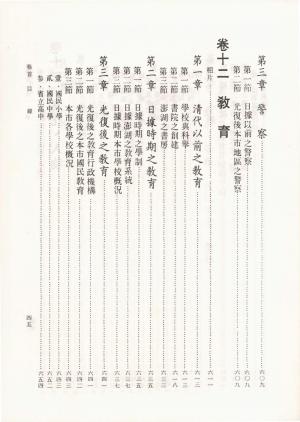 第三章 警察……六〇九
第一節 日據以前之警察……六〇九
第二節 光復後本市地區之警察……六〇九
卷十二 教育
相片
第一章 清代以前之教育……六一一
第一節 學校與科舉……六一一
第二節 書院之創建……六一八
第三節 澎湖之書房……六二八
第二章 日據時期之教育……六三五
第一節 日據時期之學制……六三五
第二節 日據澎湖之教育系統……六三七
第三節 日據時期本市學校概況……六三七
第三章 光復後之教育……六四一
第一節 光復後之教育行政機構……六四一
第二節 光復後之本市國民教育……六四二
第三節 本市各學校概況……六四三
壹、國民小學……六四三
貳、國民中學……六五二
參、省立高中……六五四
卷首 目錄
四五